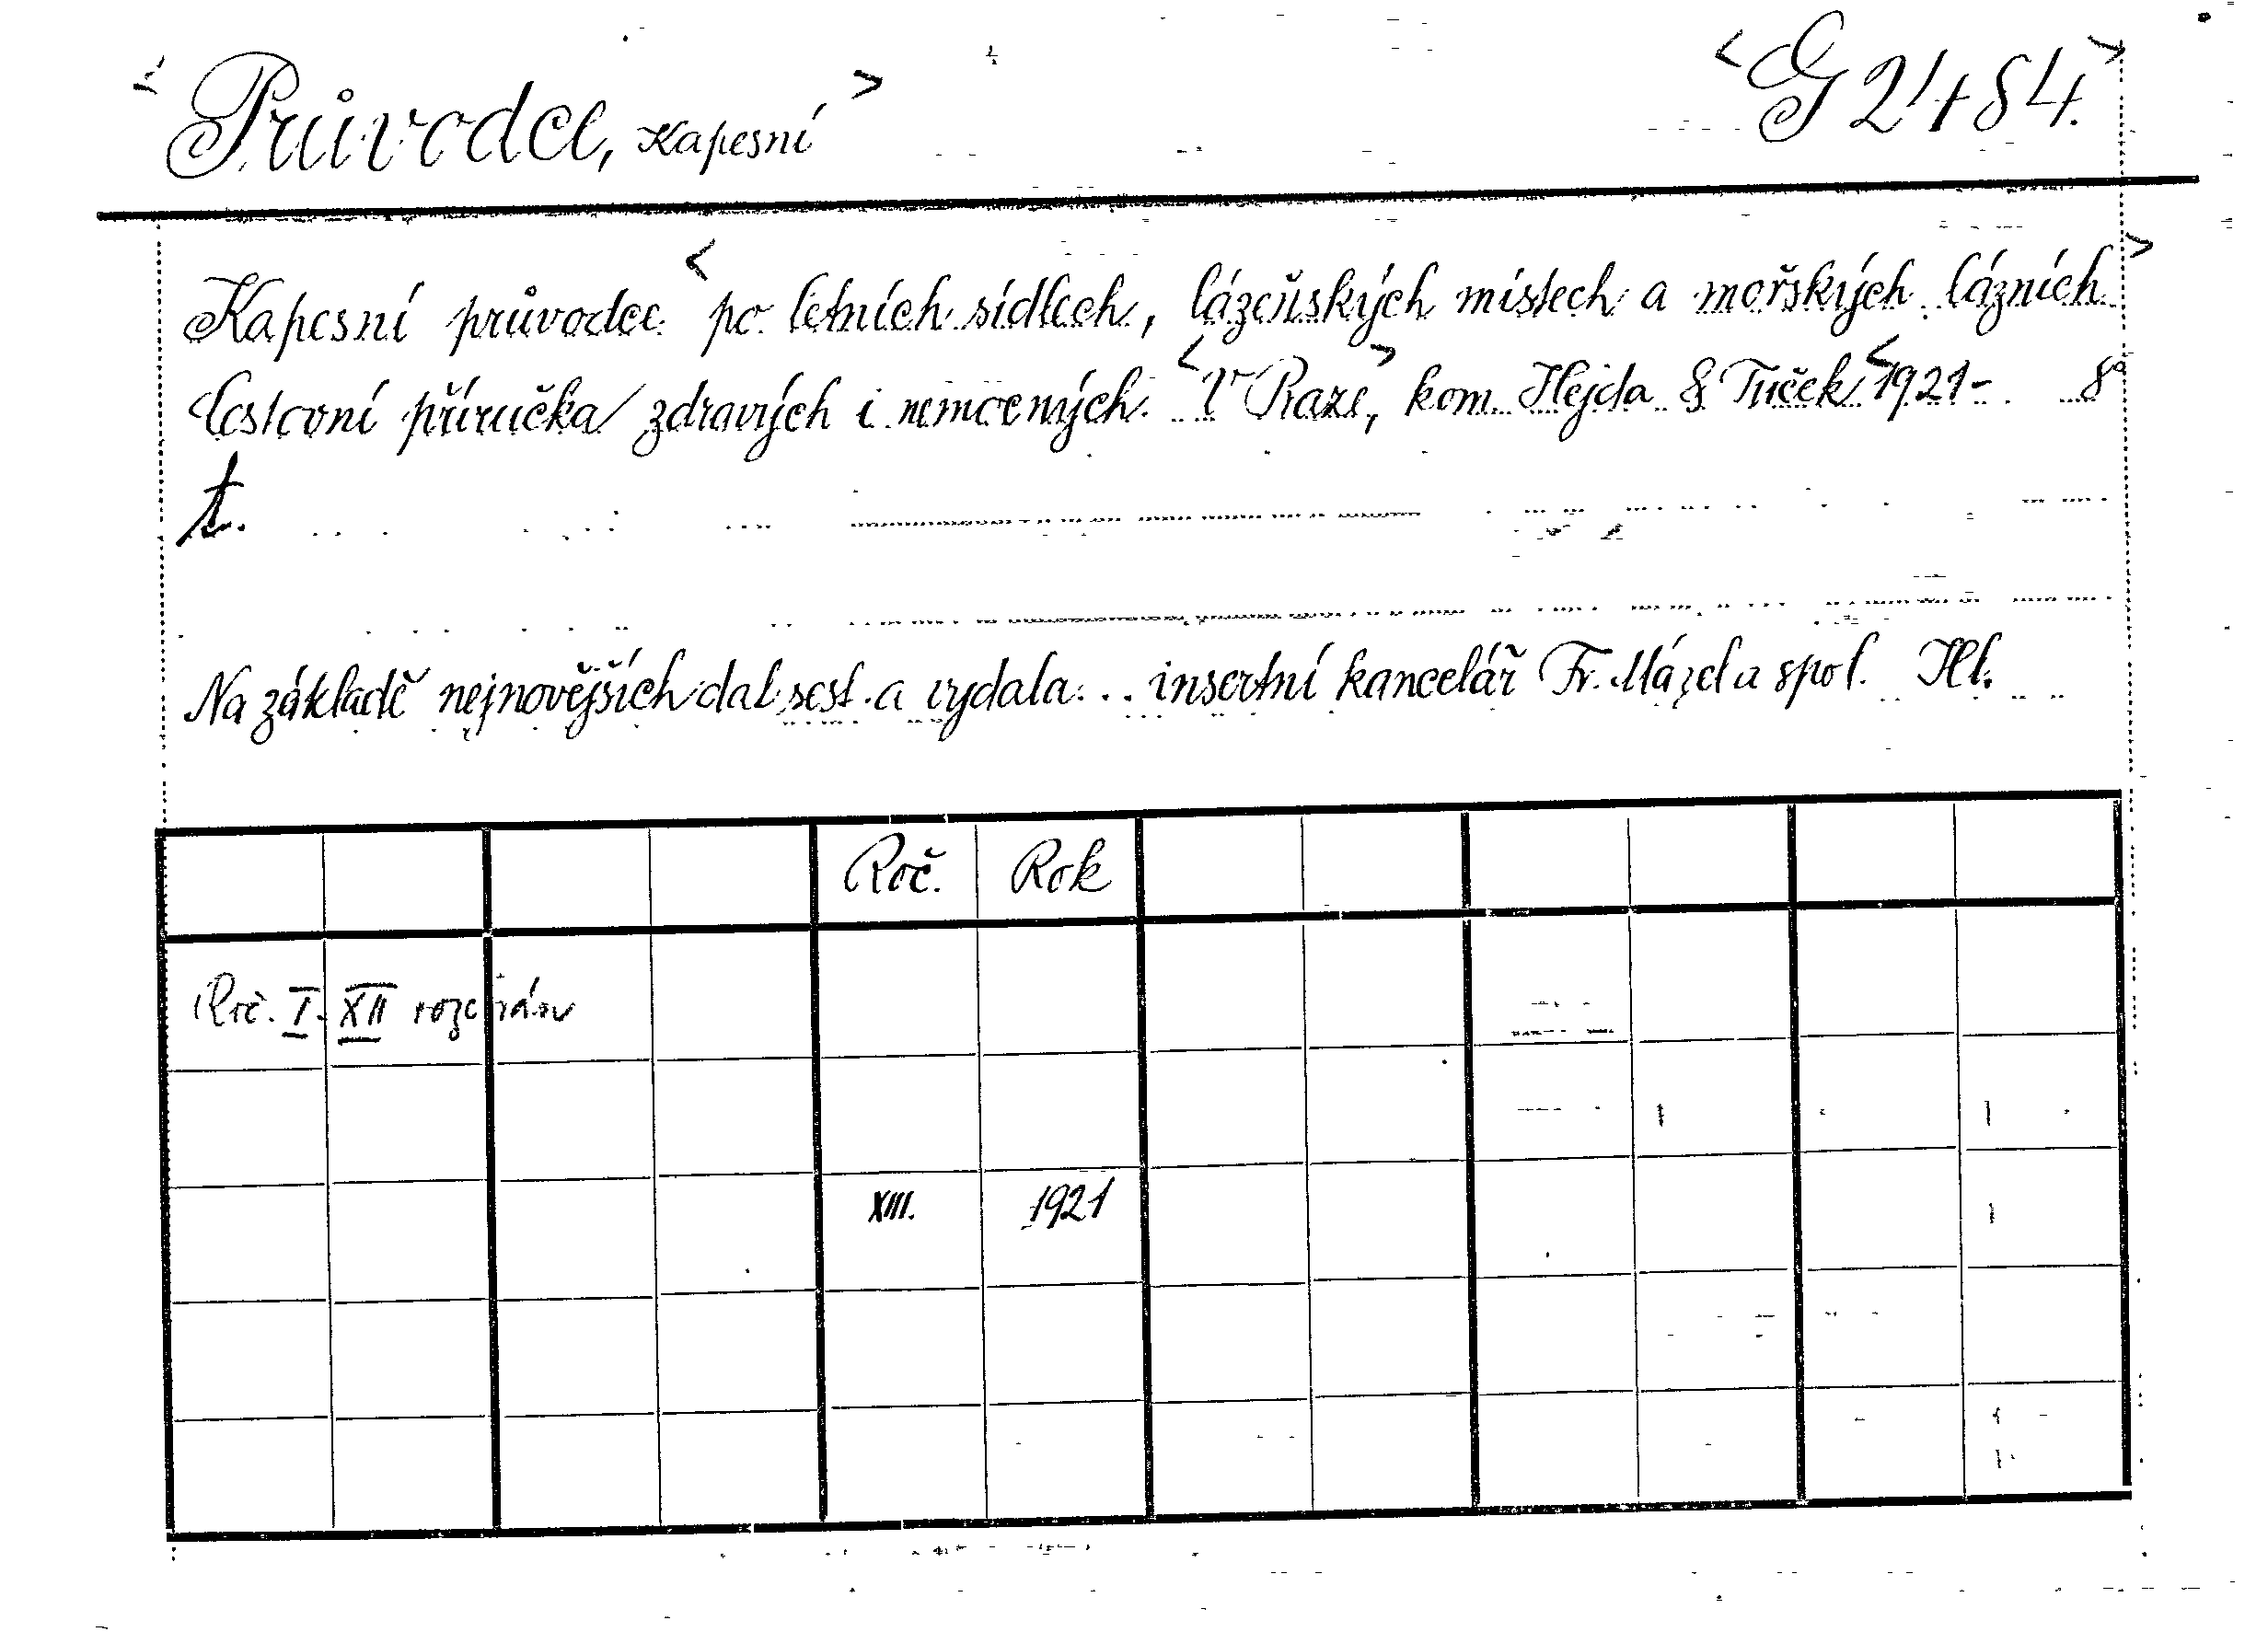 < Průvodce, Kapesní > < G 2484. >
Kapesní průvodce < po letních sídlech, lázeňských místech a mořských lázních >
Cestovní příručka zdravých i nemocných. < V Praze, > kom. Hejda & Tuček < 1921- 8°
Na základě nejnovějších dat sest. a vydala... insertní kancelář Fr. Mázel a spol. Hl.
Roč. Rok
Roč. I.-XII rozebrán
XIII. 1921